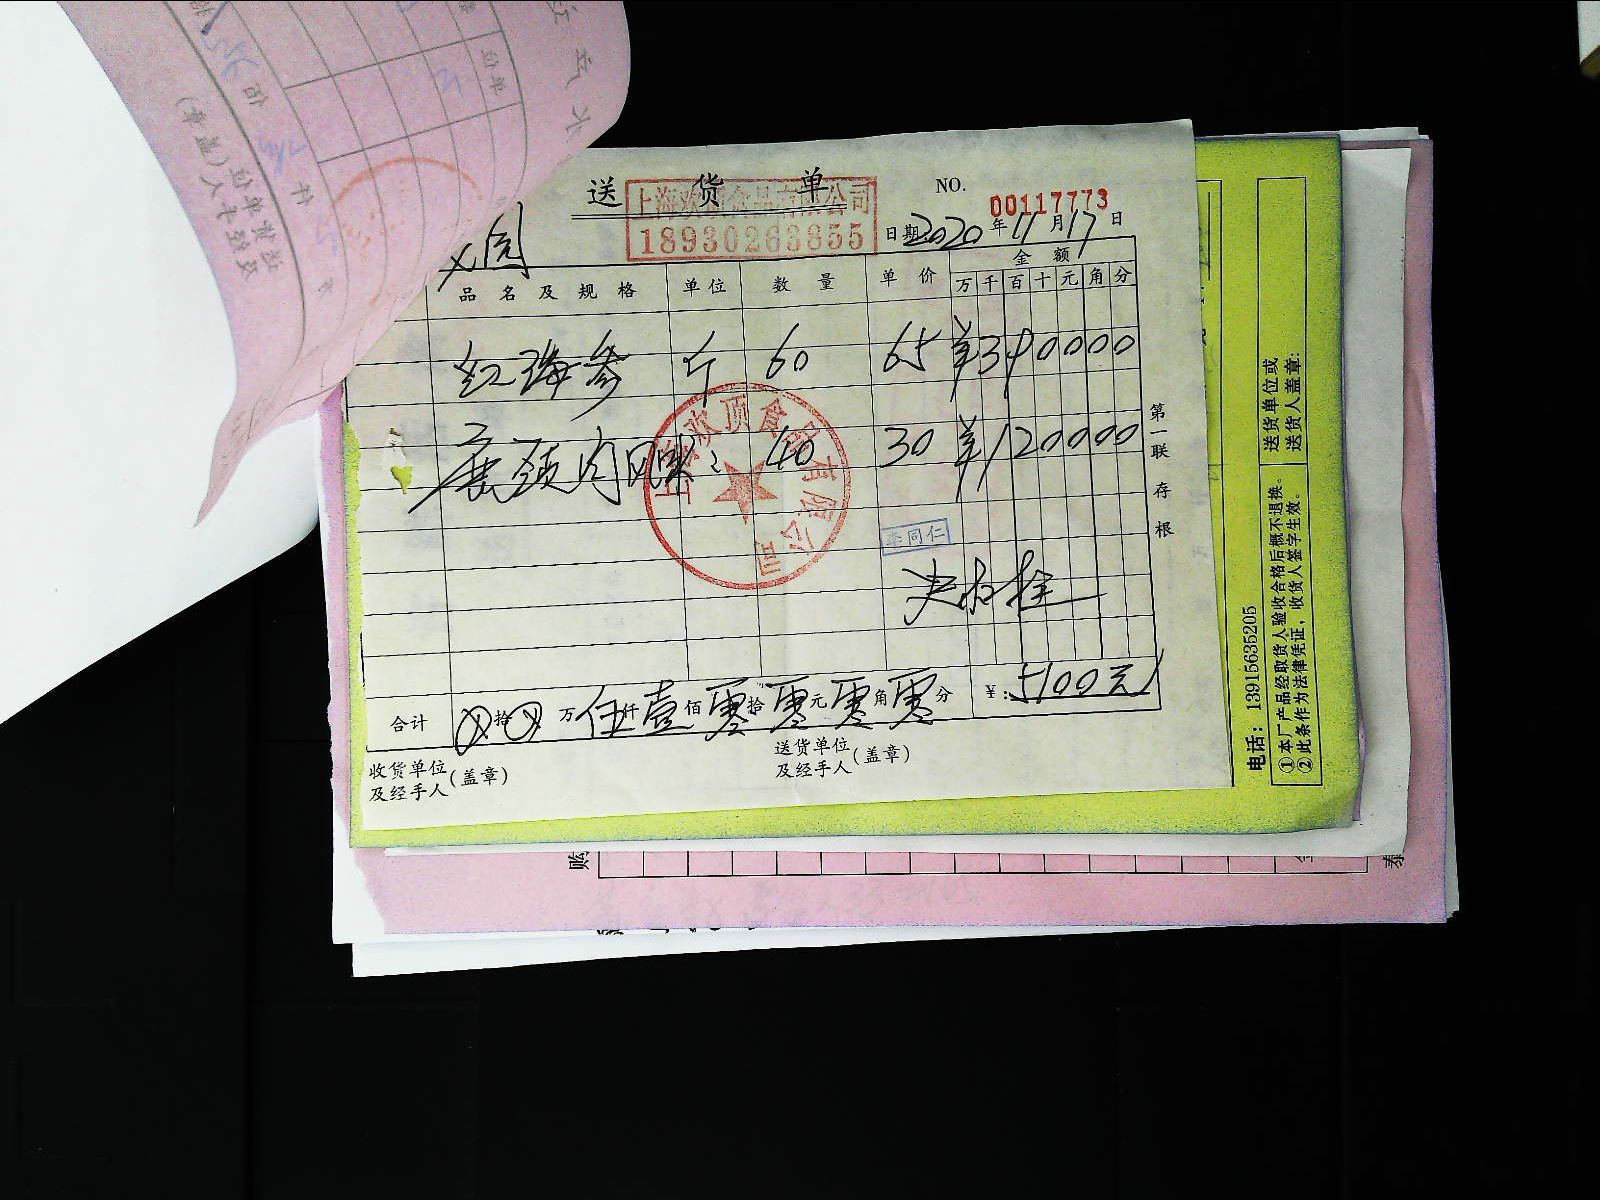 送货单
NO. 00117773
上海欢顶食品有限公司
18930263855
日期 2020年11月17日
品名及规格 单位 数量 单价 金额
万 千 百 十 元 角 分
红海参 斤 60 65 ¥390000
40 30 ¥120000
上海欢顶食品有限公司
李同仁
第一联 存根
合计 ⊗拾⊗万伍仟壹佰零拾零元零角零分 ¥:5100元
收货单位
及经手人(盖章)
送货单位
及经手人(盖章)
电话:13915635205
①本厂产品经取货人验收合格后概不退换。
②此条作为法律凭证,收货人签字生效。
送货单位或
送货人盖章:
购